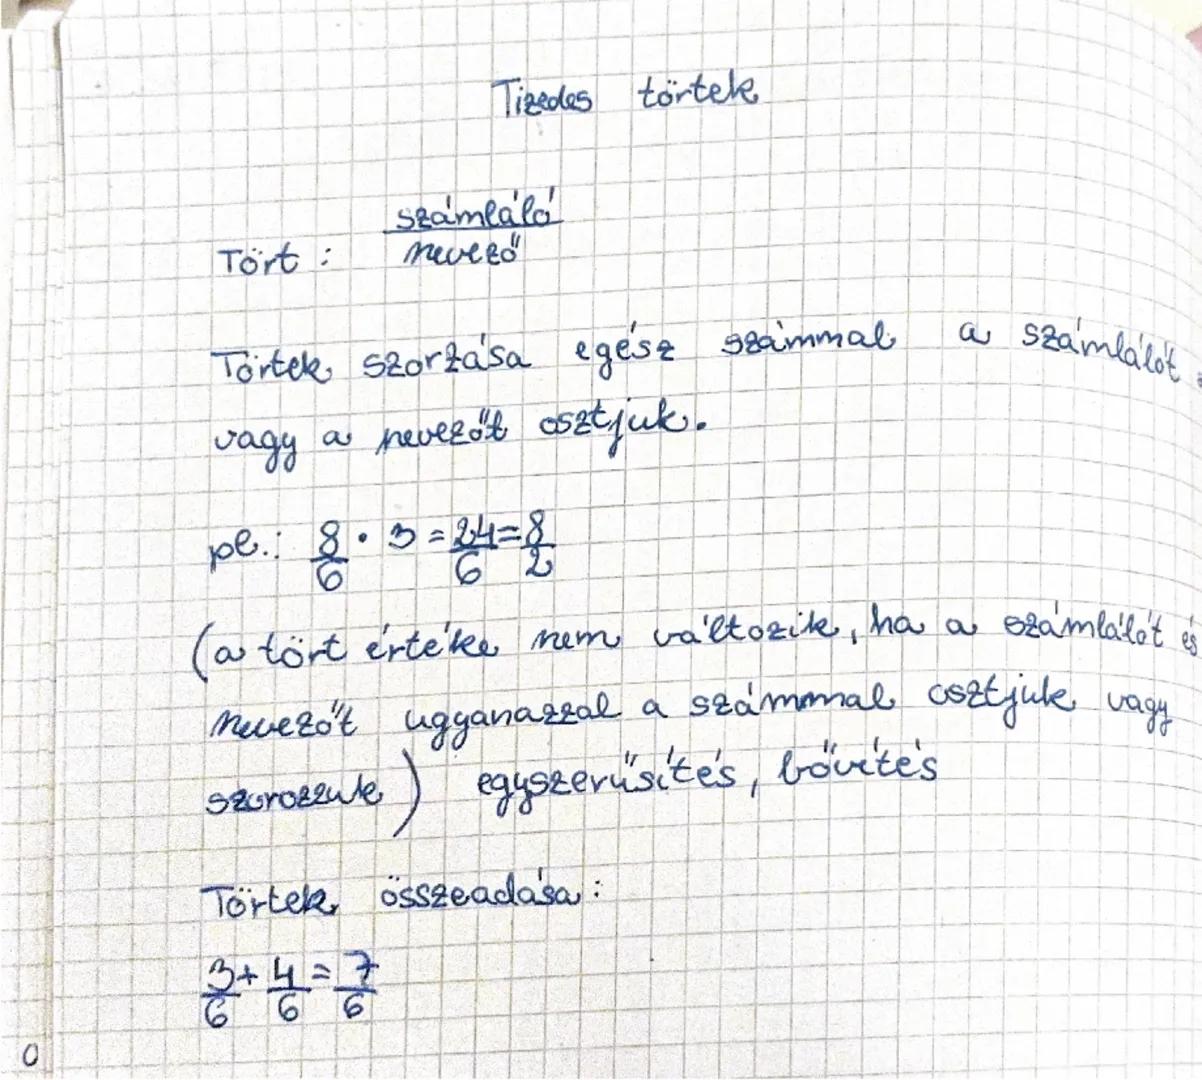 Tizedes törtek
számláló
Tört : nevező
Törtek szorzása egész számmal a számlálót
vagy a nevezőt osztjuk.
pl.: 8/6 · 3 = 24/6 = 8/2
(a tört értéke nem változik, ha a számlálót és
nevezőt ugyanazzal a számmal osztjuk vagy
szorozzuk) egyszerűsítés, bővítés
Törtek összeadása :
3/6 + 4/6 = 7/6